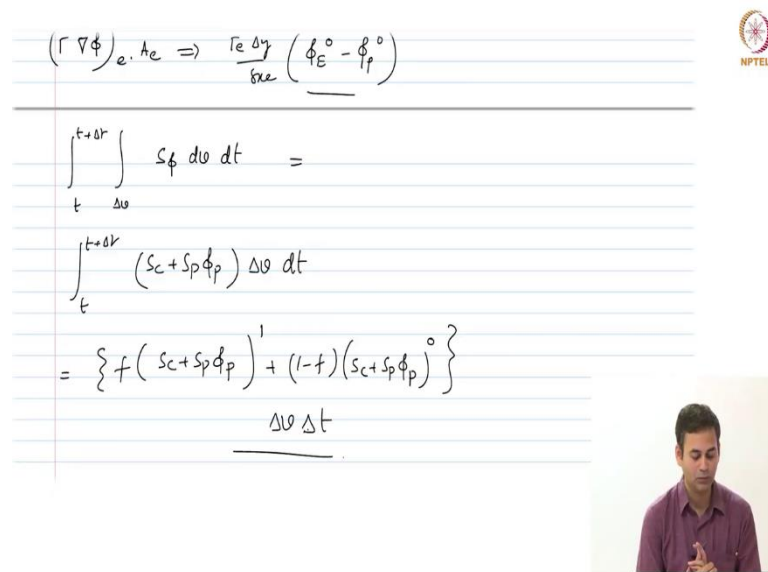 (Γ∇ϕ)e . Ae ⇒ Γe Δy / δxe (ϕE⁰ - ϕP⁰)
NPTEL
∫t^t+Δt ∫Δv Sϕ dv dt =
∫t^t+Δt (Sc + Spϕp) Δv dt
= {f(Sc + Spϕp)¹ + (1-f)(Sc + Spϕp)⁰}
Δv Δt